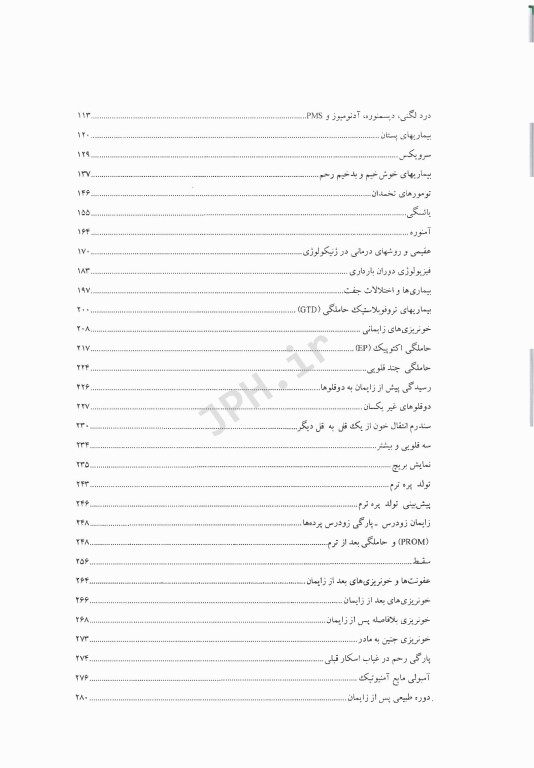 درد لگنی، دیسمنوره، آدنومیوز و PMS ........ ۱۱۳
بیماریهای پستان ........ ۱۲۰
سرویکس ........ ۱۲۹
بیماریهای خوش‌خیم و بدخیم رحم ........ ۱۳۷
تومورهای تخمدان ........ ۱۴۶
یائسگی ........ ۱۵۵
آمنوره ........ ۱۶۴
عقیمی و روشهای درمانی در ژنیکولوژی ........ ۱۷۰
فیزیولوژی دوران بارداری ........ ۱۸۳
بیماری‌ها و اختلالات جفت ........ ۱۹۷
بیماریهای تروفوبلاستیک حاملگی (GTD) ........ ۲۰۰
خونریزی‌های زایمانی ........ ۲۰۸
حاملگی اکتوپیک (EP) ........ ۲۱۷
حاملگی چند قلویی ........ ۲۲۴
رسیدگی پیش از زایمان به دوقلوها ........ ۲۲۶
دوقلوهای غیر یکسان ........ ۲۲۷
سندرم انتقال خون از یک قل به قل دیگر ........ ۲۳۰
سه قلویی و بیشتر ........ ۲۳۴
نمایش بریچ ........ ۲۳۵
تولد پره ترم ........ ۲۴۳
پیش‌بینی تولد پره ترم ........ ۲۴۶
زایمان زودرس - پارگی زودرس پرده‌ها ........ ۲۴۸
(PROM) و حاملگی بعد از ترم ........ ۲۴۸
سقط ........ ۲۵۶
عفونت‌ها و خونریزی‌های بعد از زایمان ........ ۲۶۴
خونریزی‌های بعد از زایمان ........ ۲۶۶
خونریزی بلافاصله پس از زایمان ........ ۲۶۸
خونریزی جنین به مادر ........ ۲۷۳
پارگی رحم در غیاب اسکار قبلی ........ ۲۷۴
آمبولی مایع آمنیوتیک ........ ۲۷۶
دوره طبیعی پس از زایمان ........ ۲۸۰
JPH.ir